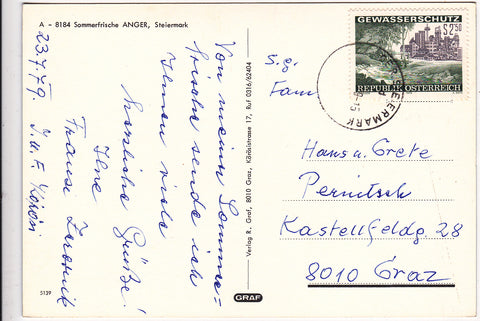 A - 8184 Sommerfrische ANGER, Steiermark
23.7.79.
Von meiner Somme-
frische sende ich
Ihnen viele
herzliche Grüße!
Ihre
Franse
J. u. F.
5139
Verlag R. Graf, 8010 Graz, Körösistrasse 17, Ruf 0316/62404
GRAF
GEWÄSSERSCHUTZ
S 2.50
REPUBLIK ÖSTERREICH
STEIERMARK
S.g.
Fam.
Hans u. Grete
Pernitsch
Kastellfeldg. 28
8010 Graz